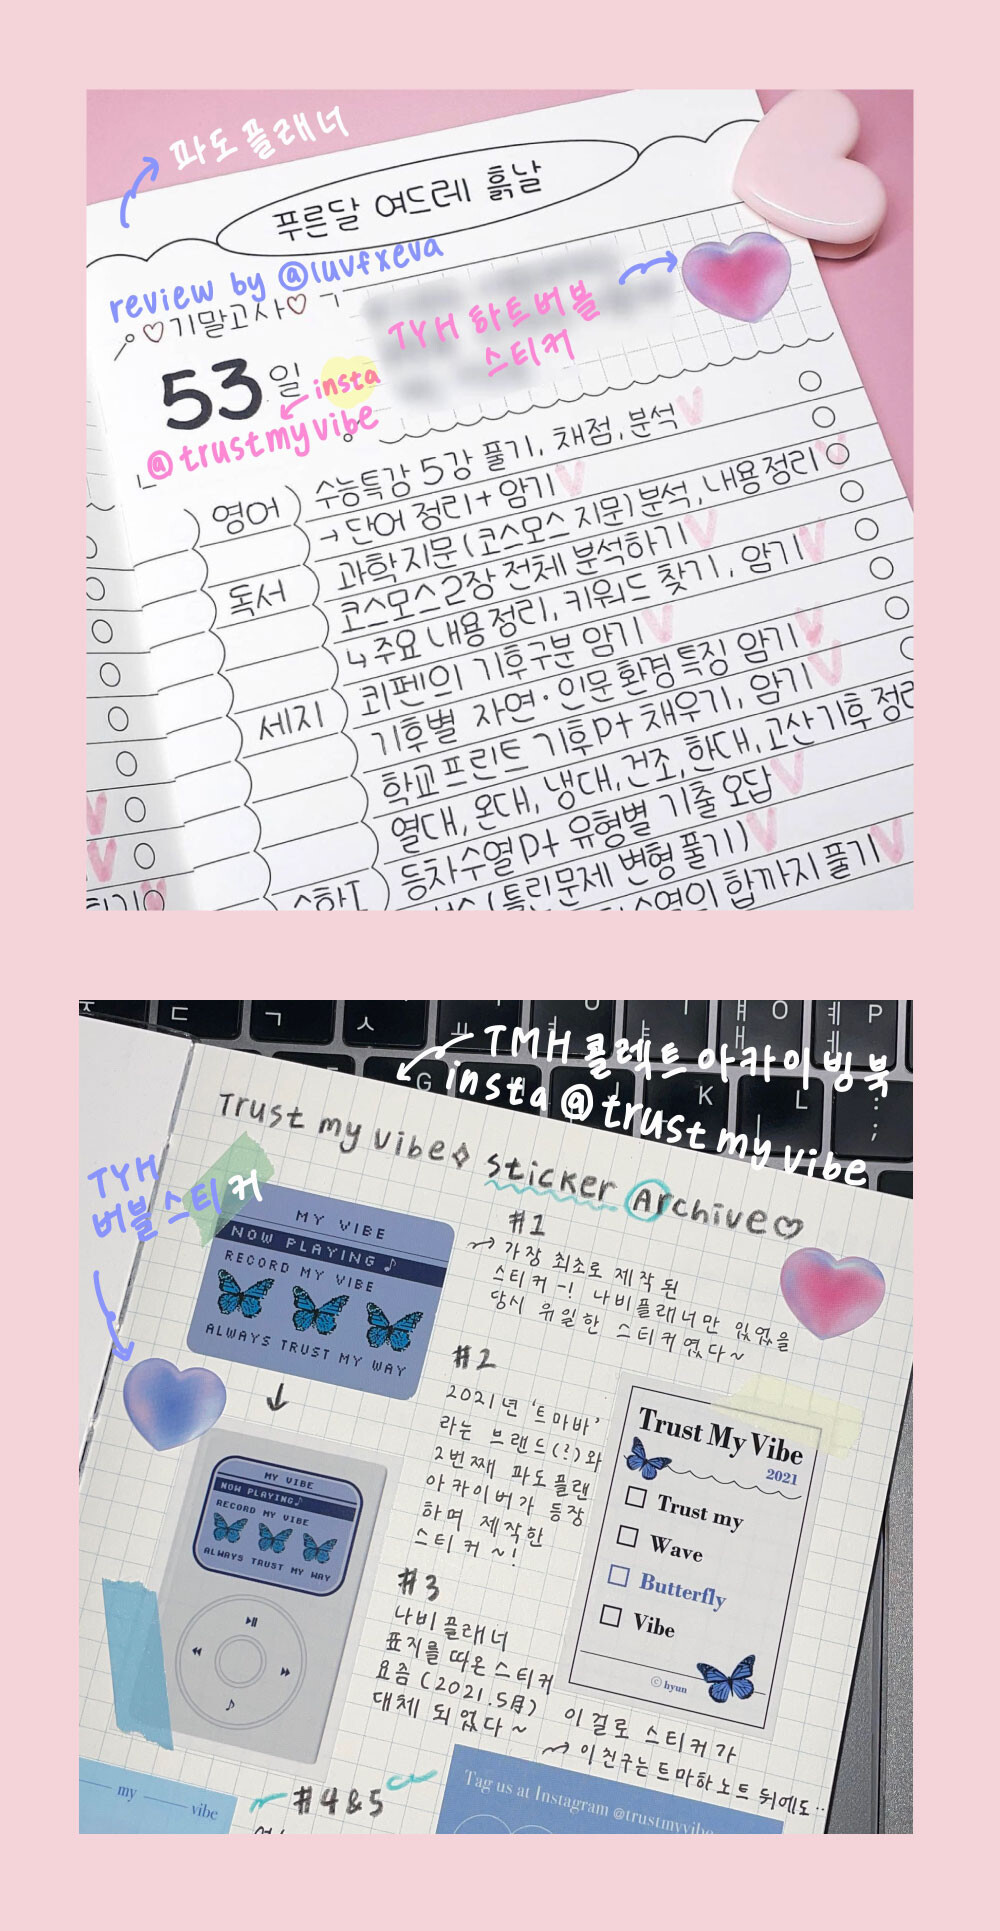 파도플래너
푸른달 여드레 흙날
review by @luvfxeva
♡기말고사♡
TYH 하트버블
스티커
53일
insta
@trustmyvibe
영어
수능특강 5강 풀기, 채점, 분석
→단어 정리+암기
독서
과학지문(코스모스 지문)분석, 내용정리
코스모스 2장 전체 분석하기
↳주요 내용정리, 키워드 찾기, 암기
세지
쾨펜의 기후구분 암기
기후별 자연·인문환경 특징 암기
학교프린트 기후P+ 채우기, 암기
열대, 온대, 냉대, 건조, 한대, 고산기후 정리
등차수열 P+ 유형별 기출 오답
(틀린문제 변형 풀기)
합까지 풀기
ㄷ ㄱ ㅅ
ㅐ O ㅔ P
ㅒ ㅖ
G K L : ;
TMH 콜렉트 아카이빙북
insta @trustmyvibe
Trust my vibe✧ sticker Archive♡
TYH
버블스티커
MY VIBE
NOW PLAYING♪
RECORD MY VIBE
ALWAYS TRUST MY WAY
#1
→ 가장 최초로 제작된
스티커-! 나비플래너만 있었을
당시 유일한 스티커였다~
#2
2021년 '트마바'
라는 브랜드(?)와
2번째 파도플랜
아카이버가 등장
하며 제작한
스티커~!
Trust My Vibe
2021
Trust my
Wave
Butterfly
Vibe
ⓒ hyun
MY VIBE
NOW PLAYING♪
RECORD MY VIBE
ALWAYS TRUST MY WAY
#3
나비플래너
표지를 따온 스티커
요즘(2021.5月)
대체 되었다~
이걸로 스티커가
→ 이 친구는 트마하노트 뒤에도..
my vibe
#4&5
Tag us at Instagram @trustmyvibe